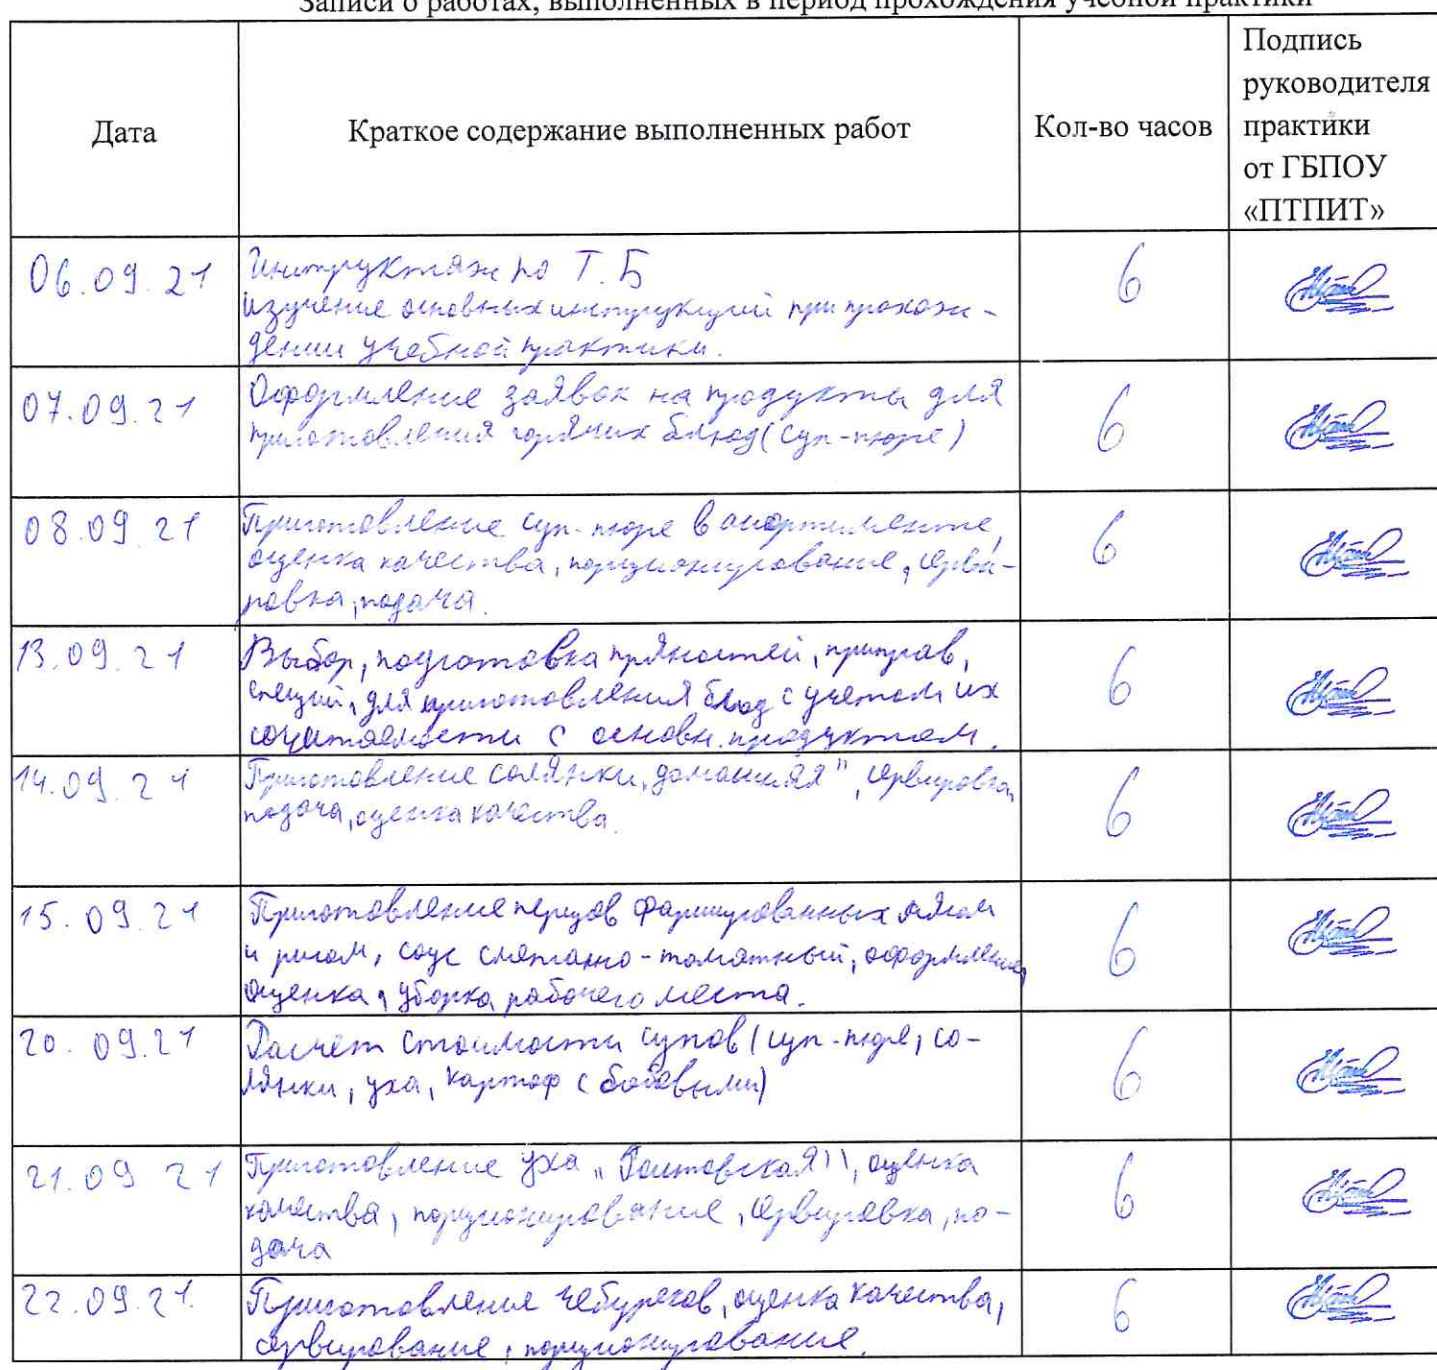 Записи о работах, выполненных в период прохождения учебной практики
Дата
Краткое содержание выполненных работ
Кол-во часов
Подпись
руководителя
практики
от ГБПОУ
«ПТПИТ»
06.09.21
Инструктаж по Т.Б
изучение основных инструкций при прохож-
дении учебной практики.
6
07.09.21
Оформление заявок на продукты для
приготовления горячих блюд (суп-пюре)
6
08.09.21
Приготовление суп-пюре в ассортименте,
оценка качества, порционирование, серви-
ровка, подача.
6
13.09.21
Выбор, подготовка пряностей, приправ,
специй, для приготовления блюд с учетом их
сочитаемости с основн. продуктом.
6
14.09.21
Приготовление солянки „домашняя", сервировка,
подача, оценка качества.
6
15.09.21
Приготовление перцов фаршированных мясом
и рисом, соус сметанно-томатный, оформление,
оценка, уборка рабочего места.
6
20.09.21
Расчет стоимости супов (суп-пюре, со-
лянки, уха, картоф с бобовыми)
6
21.09 21
Приготовление уха „Ростовская", оценка
качества, порционирование, сервировка, по-
дача
6
22.09.21.
Приготовление чебуреков, оценка качества,
сервирование, порционирование.
6